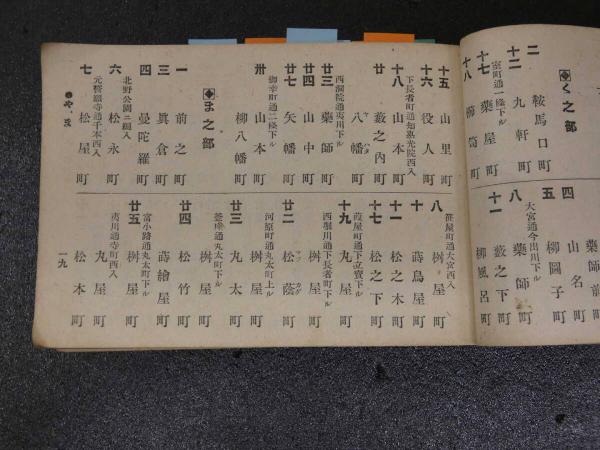 ◆く之部
二 鞍馬口町
十二 九軒町
室町通一條下ル
十七 藥屋町
十八
四 山名町
五 柳圖子町
大宮通今出川下ル
八 藥師町
十一 藪之下町
柳風呂町
十五 山里町
十六 役人町
下長者町通知惠光院西入
十八 山本町
廿 藪之內町
八幡町
西洞院通夷川下ル
廿三 藥師町
廿四 山中町
廿七 矢幡町
御幸町通二條下ル
卅 山本町
柳八幡町
◆ま之部
一 前之町
三 眞倉町
四 曼陀羅町
六 松永町
北野公園ニ編入
七 松屋町
元誓願寺通千本西入
●やま
八 桝屋町
笹屋町通大宮西入
十 蒔鳥屋町
十一 松之木町
十七 松之下町
葭屋町通下立賣下ル
十九 丸屋町
西堀川通下長者町下ル
桝屋町
廿二 松蔭町
河原町通丸太町上ル
桝屋町
廿三 丸太町
釜座通丸太町下ル
桝屋町
廿四 松竹町
蒔繪屋町
富小路通丸太町下ル
廿五 桝屋町
丸屋町
夷川通寺町西入
松本町
一九